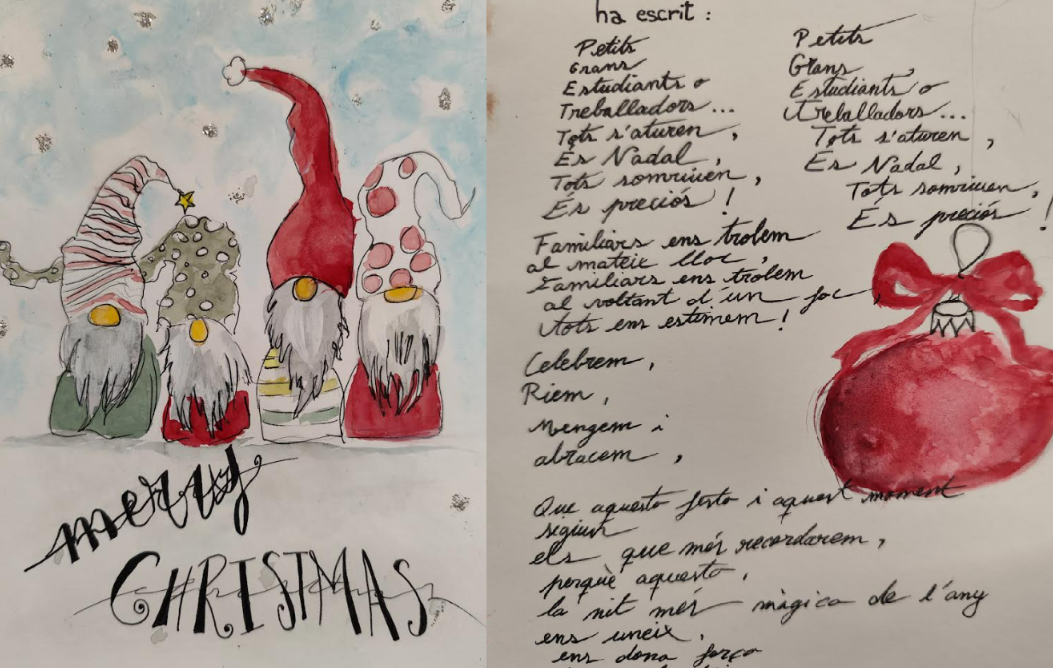 merry
CHRISTMAS
ha escrit :
Petits
Grans
Estudiants o
Treballadors...
Tots s'aturen,
És Nadal,
Tots somriuen,
És preciós !
Petits
Grans,
Estudiants o
Treballadors...
Tots s'aturen,
És Nadal,
Tots somriuen,
És preciós !
Familiars ens trobem
al mateix lloc,
Familiars ens trobem
al voltant d'un foc
tots ens estimem!
Celebrem,
Riem,
Mengem i
abracem,
Que aquesta festa i aquest moment
siguin
els que més recordarem,
perquè aquesta,
la nit més màgica de l'any
ens uneix,
ens dona força